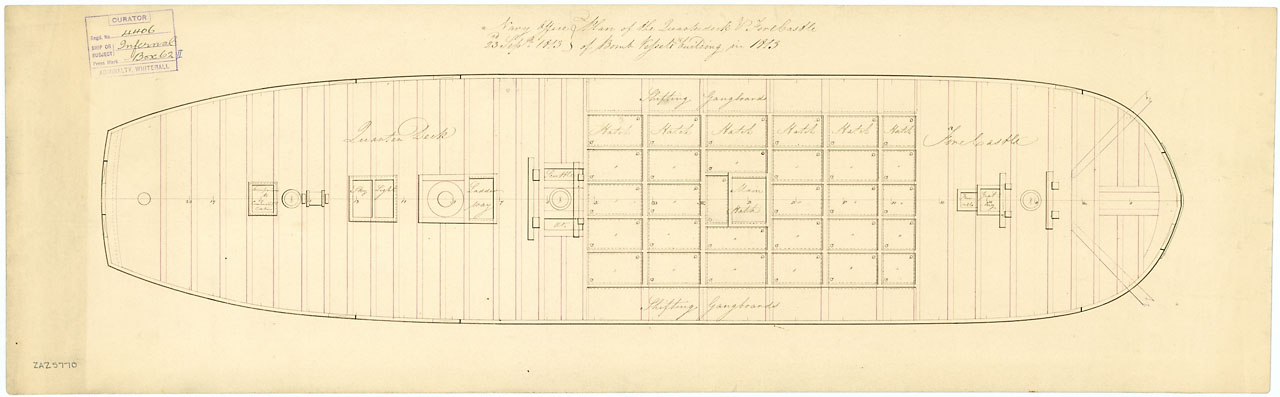 CURATOR
Regd. No. 4406
SHIP OR SUBJECT Infernal
Press Mark Box 62 II
ADMIRALTY, WHITEHALL
Navy Office } Plan of the Quarterdeck & ForeCastle
23 Septr. 1823 } of Bomb Vessels building in 1823
Shifting Gangboards
Hatch Hatch Hatch Hatch Hatch Hatch
Quarter Deck
ForeCastle
Sky Light
Ladder way
Scuttle
Main Hatch
Shifting Gangboards
ZAZ5770